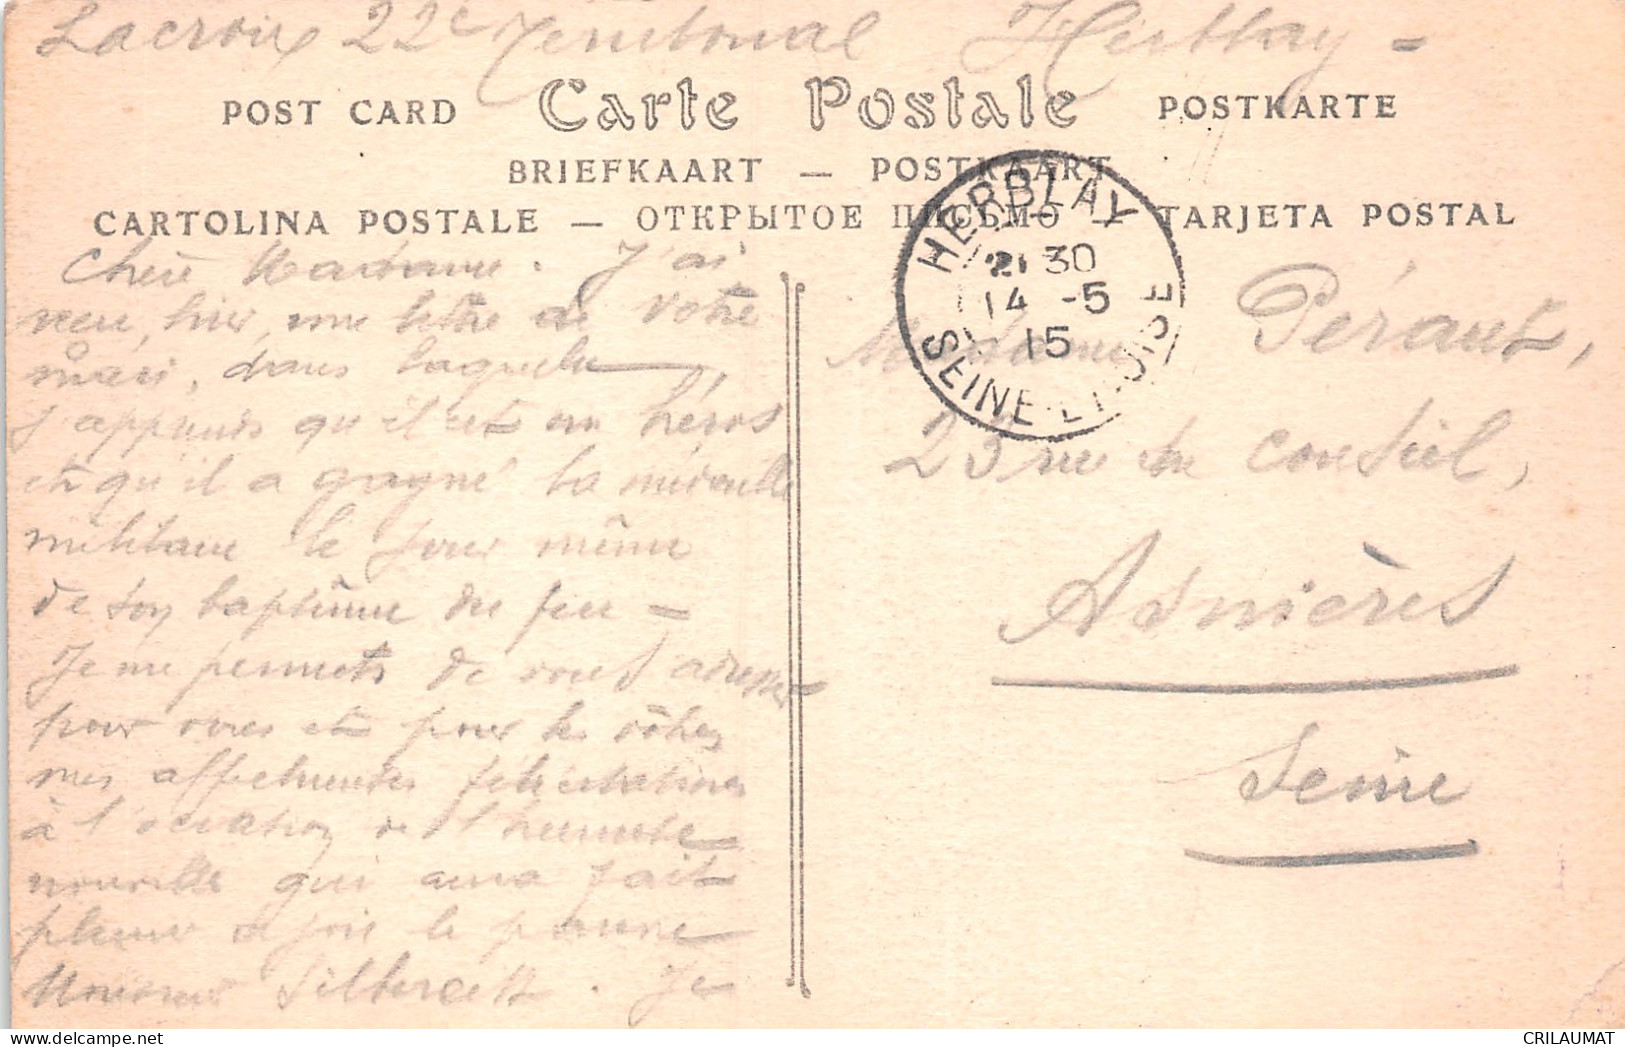 Lacroix 22e Territorial Herblay =
POST CARD Carte Postale POSTKARTE
BRIEFKAART — POSTKAART
CARTOLINA POSTALE — ОТКРЫТОЕ ПИСЬМО — TARJETA POSTAL
Chère Madame. J'ai
reçu, hier, une lettre de votre
mari, dans laquelle
j'apprends qu'il est un héros
et qu'il a gagné la médaille
militaire le jour même
de son baptême du feu =
Je me permets de vous adresser
pour vous et pour les vôtres
mes affectueuses félicitations
à l'occasion de l'heureuse
nouvelle qui aura fait
pleurer de joie le pauvre
Monsieur . Je
HERBLAY
21 30
14 -5
15
SEINE-ET-OISE
Madame Péraut,
23 rue du Conseil,
Asnières
Seine
CRILAUMAT